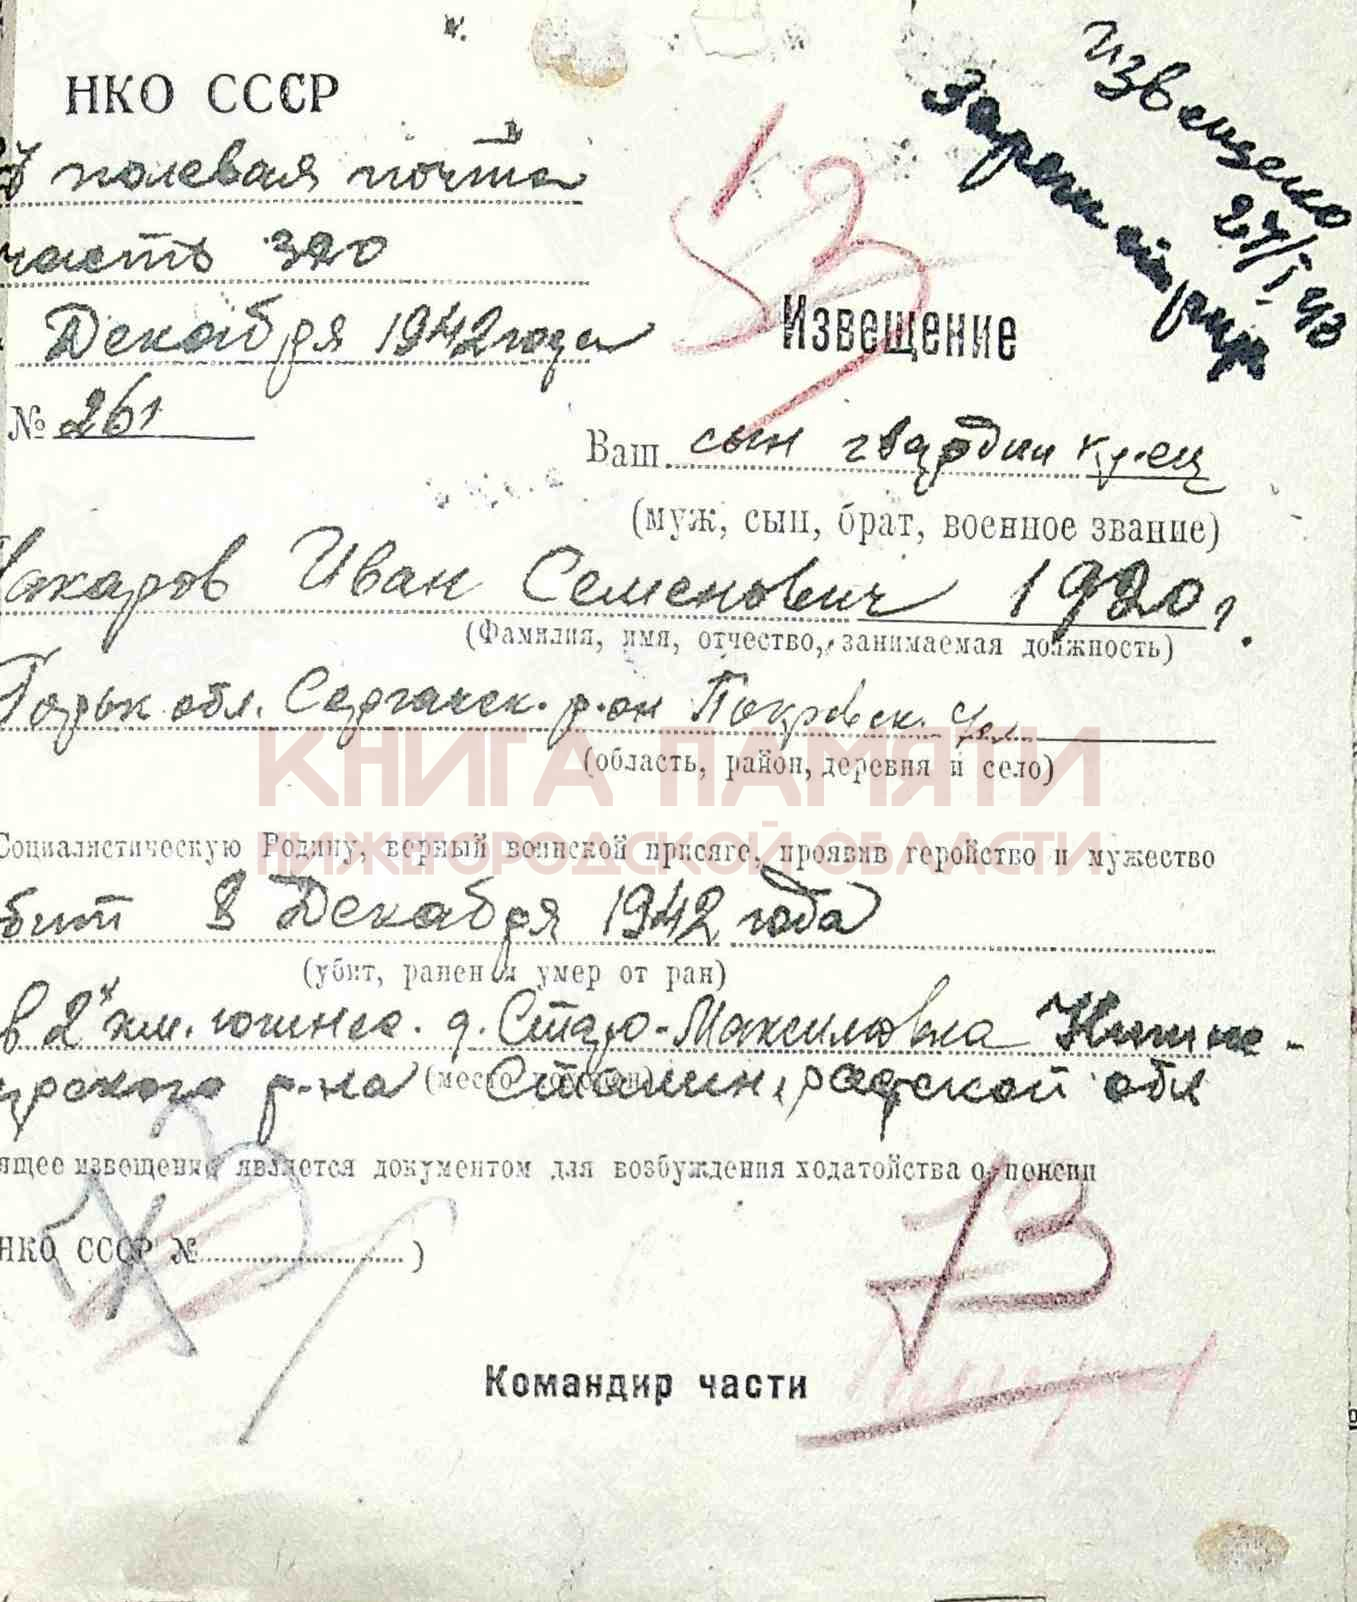 НКО СССР
полевая почта
часть 320
Декабря 1942 года
№ 261
извещено
27/I 43
Зарегистрир
Извещение
Ваш сын гвардии кр-ец
(муж, сын, брат, военное звание)
Макаров Иван Семенович 1920 г.
(Фамилия, имя, отчество, занимаемая должность)
Горьк обл. Сергачск. р-он Покровск.
(область, район, деревня и село)
КНИГА ПАМЯТИ
НИЖЕГОРОДСКОЙ ОБЛАСТИ
Социалистическую Родину, верный воинской присяге, проявив геройство и мужество
бит 8 Декабря 1942 года
(убит, ранен и умер от ран)
в 2х км. южнее. д. Старо-Максимовка Нижне-
р-на Сталинградской обл
(место похорон)
ящее извещение является документом для возбуждения ходатойства о пенсии
НКО СССР № )
73
Командир части